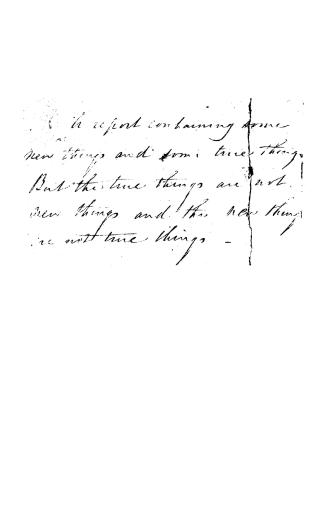 report containing some
new things and some true things
But the true things are not
new things and the new things
are not true things –